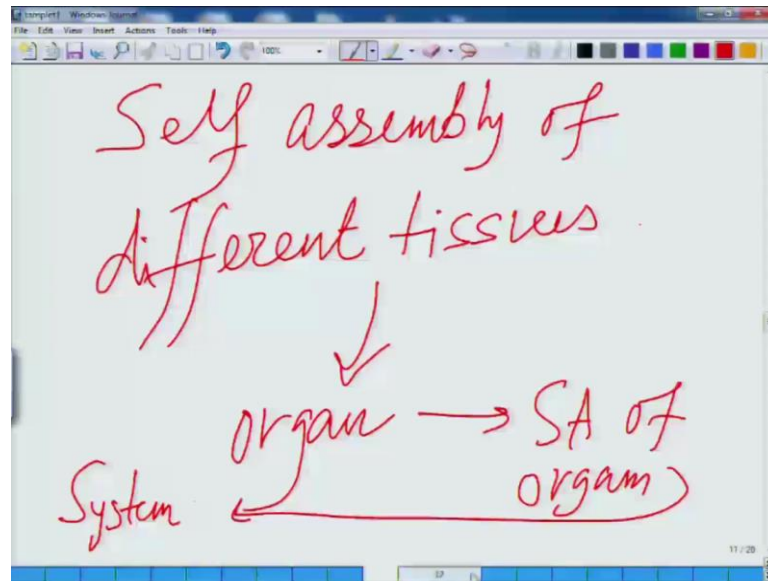 complet1 Windows Journal
File Edit View Insert Actions Tools Help
100%
Self assembly of
different tissues
organ → SA of
organs
System
17 / 20